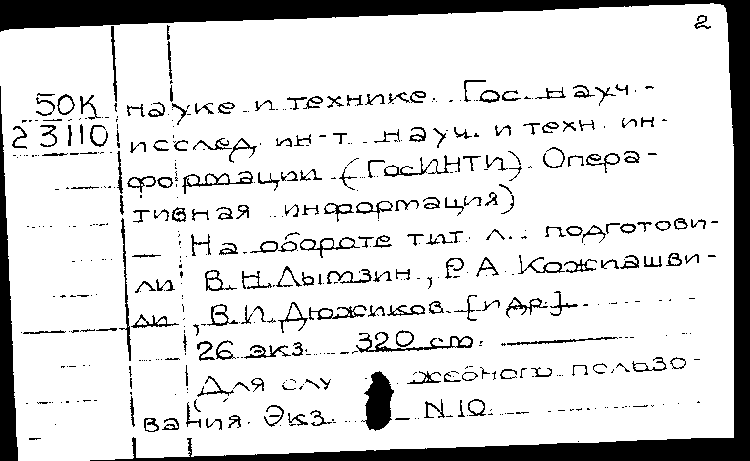 2
50К науке и технике. Гос. науч.-
23110 исслед. ин-т науч. и техн. ин-
формации (ГосИНТИ). Опера-
тивная информация)
На обороте тит. л.: подготови-
ли В.Н.Лымзин, Р.А. Кожиашви-
ли, В.И.Дюжиков [и др].
26 экз. 320 см.
Для служебного пользо-
вания. Экз. N 10